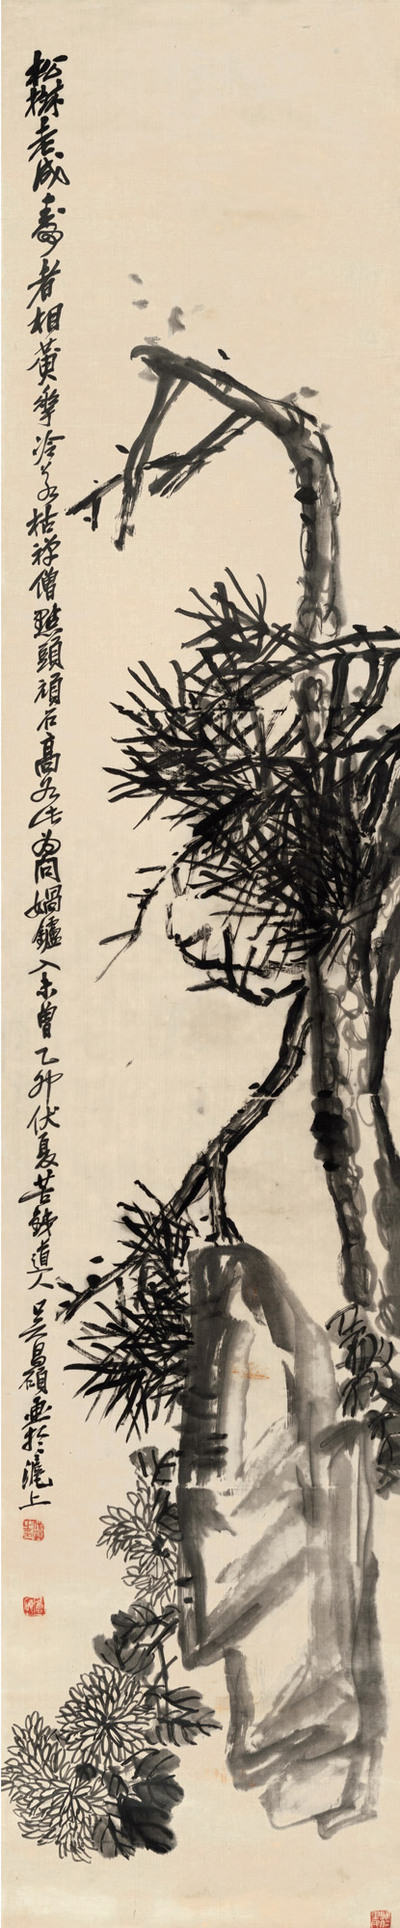 松樹老成壽者相黃華冷若枯禪僧點頭頑石高如此為問媧鑪入未曾乙卯伏夏苦鐵道人吳昌碩畫於滬上